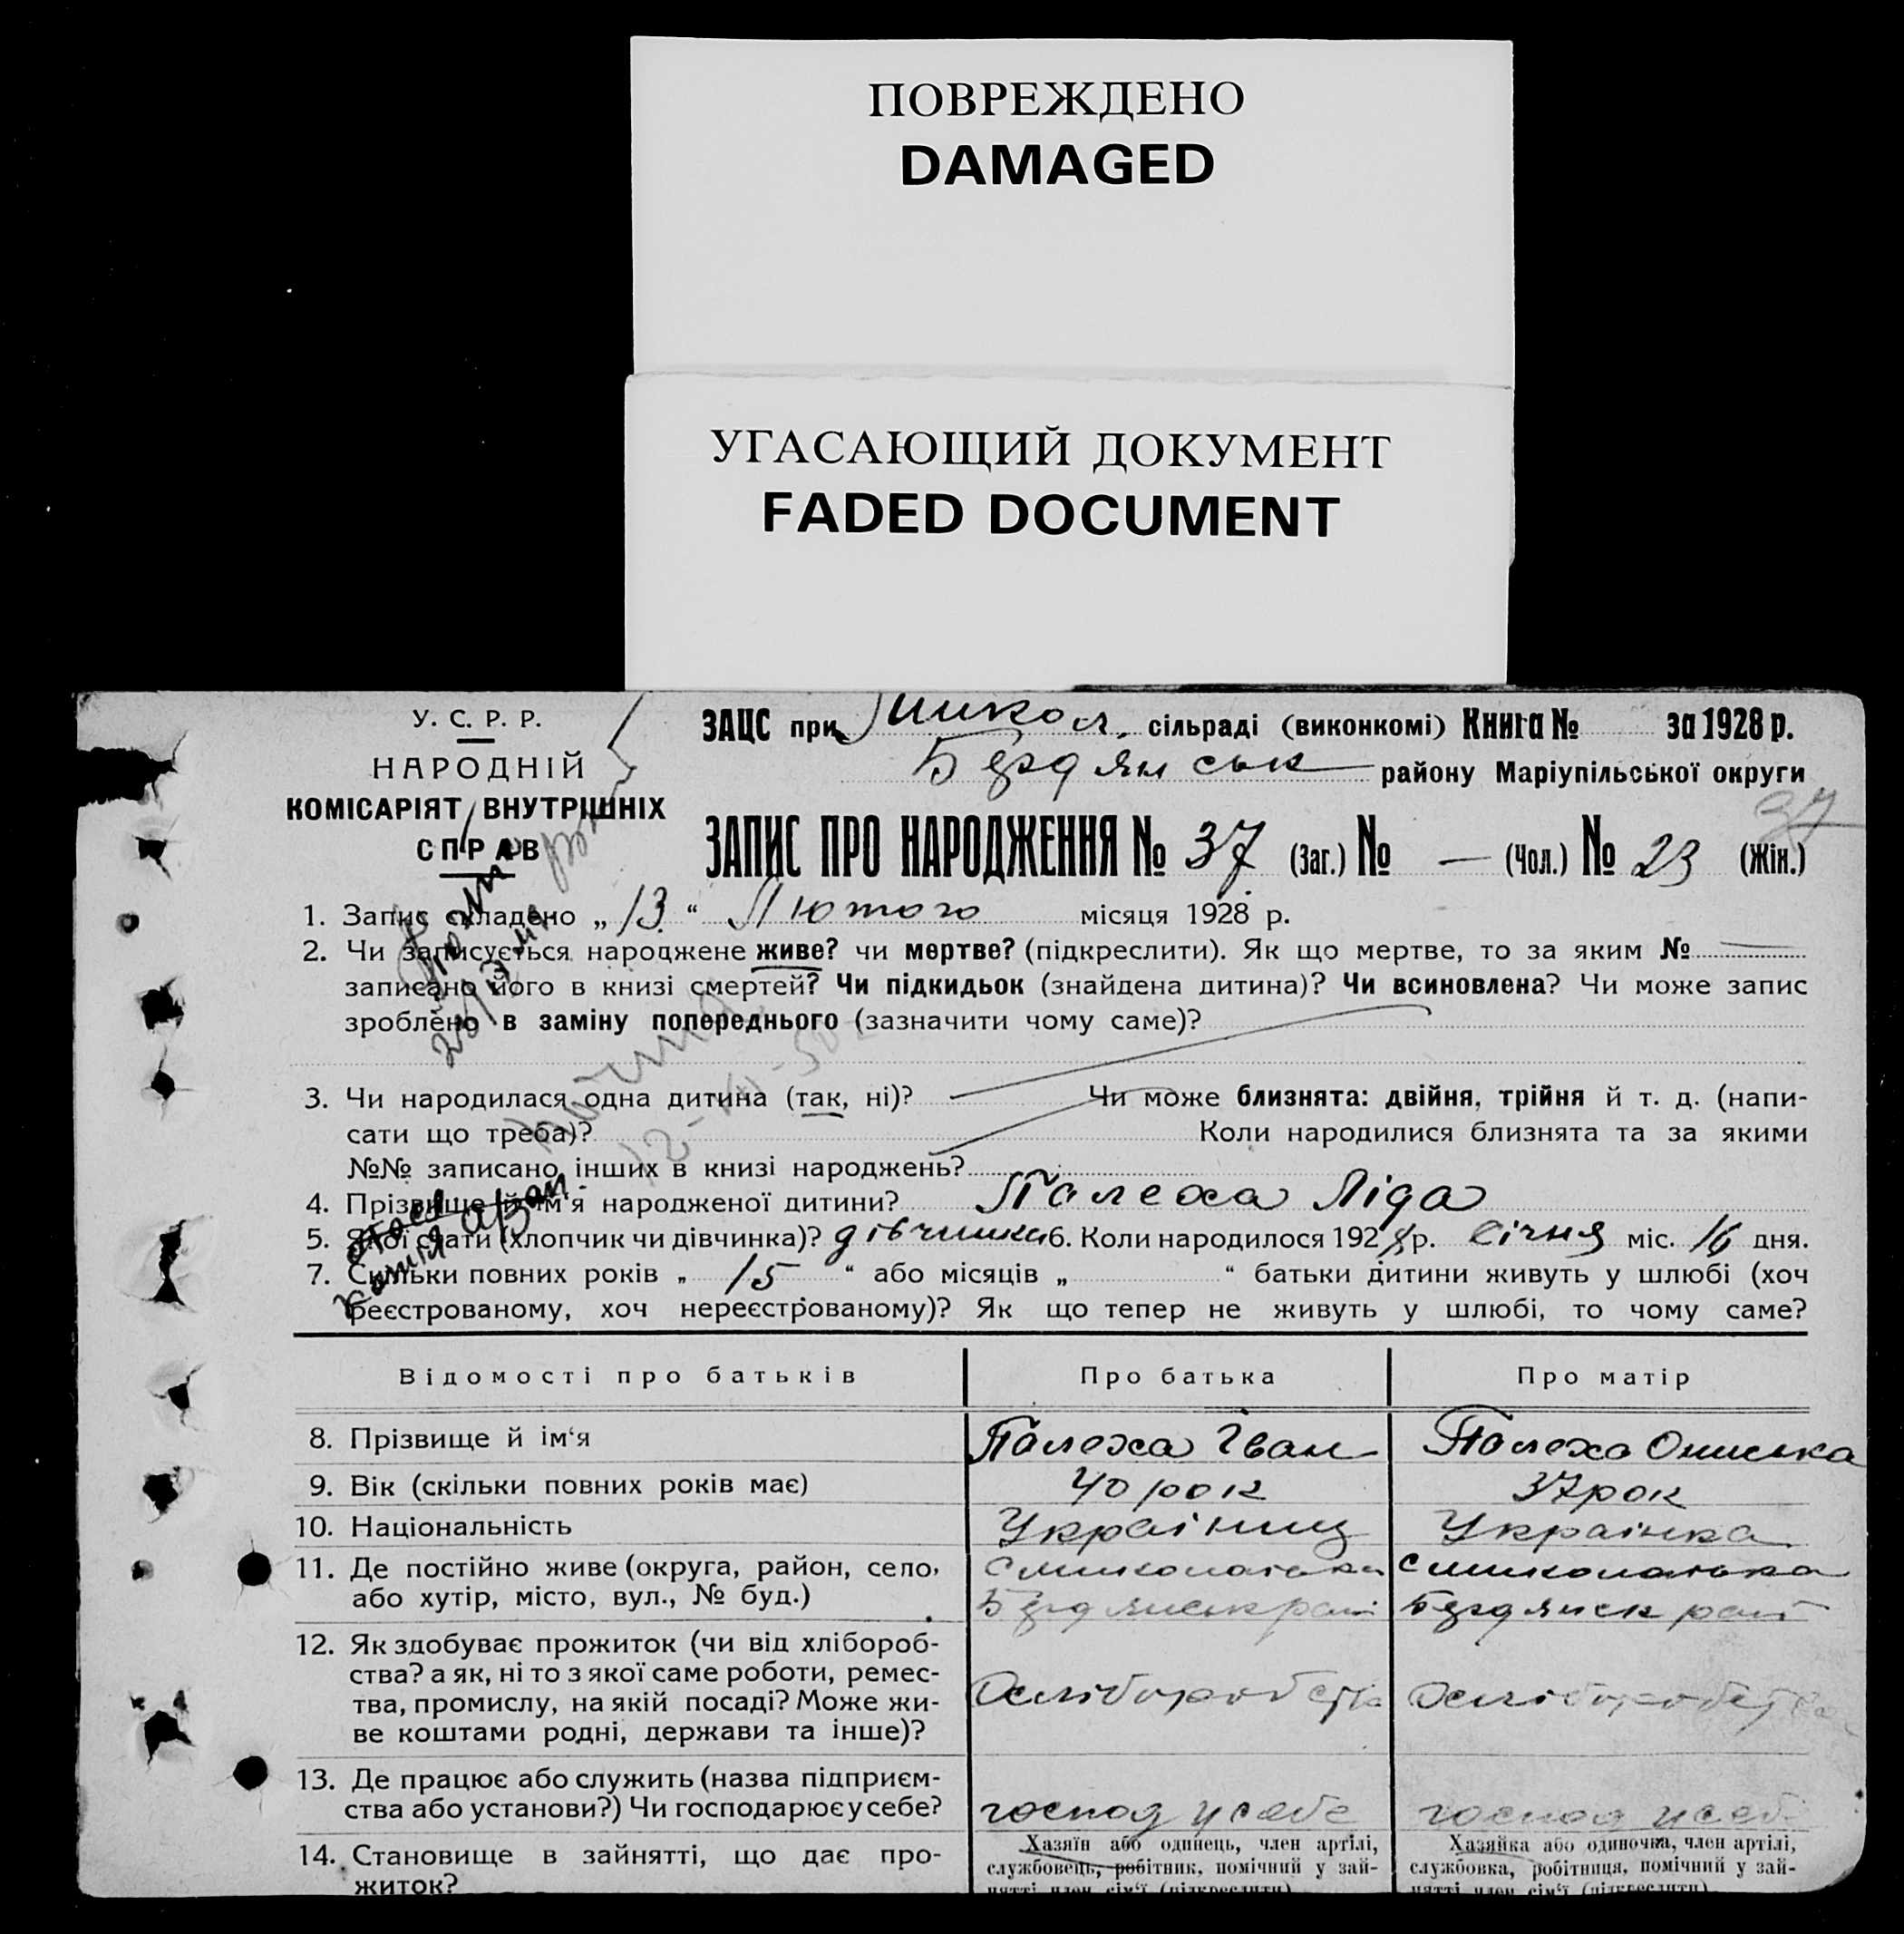 ПОВРЕЖДЕНО
DAMAGED
УГАСАЮЩИЙ ДОКУМЕНТ
FADED DOCUMENT
У. С. Р. Р.
НАРОДНІЙ
КОМІСАРІЯТ ВНУТРІШНІХ
СПРАВ
ЗАЦС при сільраді (виконкомі) Книга № за 1928 р.
Бердянськ району Маріупільської округи
37
ЗАПИС ПРО НАРОДЖЕННЯ № 37 (Заг.) № — (Чол.) № 23 (Жін.)
1. Запис складено „ 13 “ Лютого місяця 1928 р.
2. Чи записується народжене живе? чи мертве? (підкреслити). Як що мертве, то за яким №
записано його в книзі смертей? Чи підкидьок (знайдена дитина)? Чи всиновлена? Чи може запис
зроблено в заміну попереднього (зазначити чому саме)?
3. Чи народилася одна дитина (так, ні)? Чи може близнята: двійня, трійня й т. д. (напи-
сати що треба)? Коли народилися близнята та за якими
№№ записано інших в книзі народжень?
4. Прізвище й ім'я народженої дитини? Палеха Ліда
5. Якої стати (хлопчик чи дівчинка)? дівчинка 6. Коли народилося 1928 р. Січня міс. 16 дня.
7. Скільки повних років „ 15 “ або місяців „ “ батьки дитини живуть у шлюбі (хоч
реєстрованому, хоч нереєстрованому)? Як що тепер не живуть у шлюбі, то чому саме?
Відомості про батьків Про батька Про матір
8. Прізвище й ім‘я Палеха Іван Палеха Онишка
9. Вік (скільки повних років має) 40 рок 37 рок
10. Національність Українць Українка
11. Де постійно живе (округа, район, село,
або хутір, місто, вул., № буд.) Бердянськ рай Бердянск рай
12. Як здобуває прожиток (чи від хлібороб-
ства? а як, ні то з якої саме роботи, ремес-
тва, промислу, на якій посаді? Може жи-
ве коштами родні, держави та інше)?
13. Де працює або служить (назва підприєм-
ства або установи?) Чи господарює у себе? господ у себе господ у себ
14. Становище в зайнятті, що дає про-
житок?
Хазяїн або одинець, член артілі,
службовець, робітник, помічний у зай-
нятті член сім‘ї (підкреслити)
Хазяйка або одиночка, член артілі,
службовка, робітниця, помічний у зай-
нятті член сім‘ї (підкреслити)